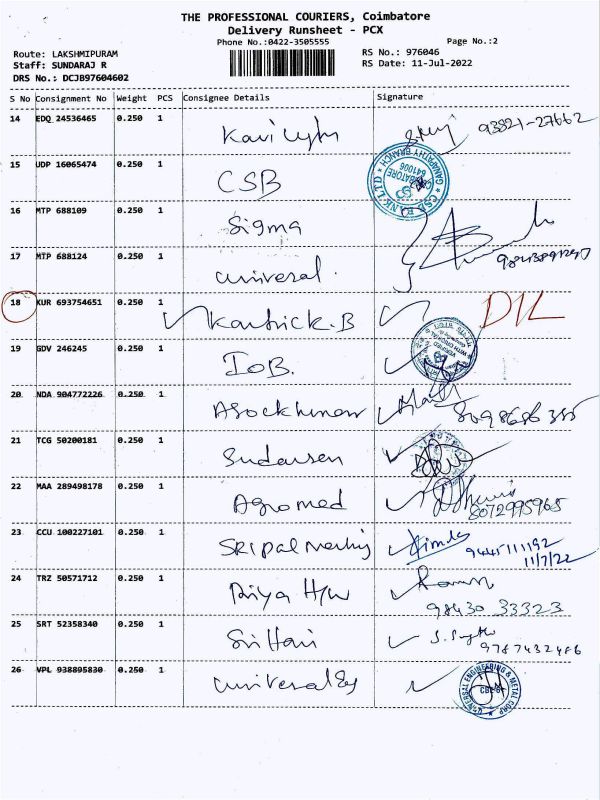 THE PROFESSIONAL COURIERS, Coimbatore
Delivery Runsheet - PCX
Phone No.:0422-3505555 Page No.:2
Route: LAKSHMIPURAM RS No.: 976046
Staff: SUNDARAJ R RS Date: 11-Jul-2022
DRS No.: DCJB97604602
S No Consignment No Weight PCS Consignee Details Signature
14 EDQ 24536465 0.250 1 93821-27662
15 UDP 16065474 0.250 1 CSB CSB BANK LTD GANAPATHY BRANCH 641006
16 MTP 688109 0.250 1 Sigma
17 MTP 688124 0.250 1 Univeral.
18 KUR 693754651 0.250 1 Kartrick.B
19 GDV 246245 0.250 1 IOB.
20 NDA 904772226 0.250 1
21 TCG 50200181 0.250 1 Sudarsen
22 MAA 289498178 0.250 1 Agromed 8072995965
23 CCU 100227101 0.250 1 SRipal 9445111192
11/7/22
24 TRZ 50571712 0.250 1 Priya H/W
98430 33323
25 SRT 52358340 0.250 1 SriHari 9787432486
26 VPL 938895830 0.250 1 UNIVERSAL ENGINEERING & METAL CORP CBE-6